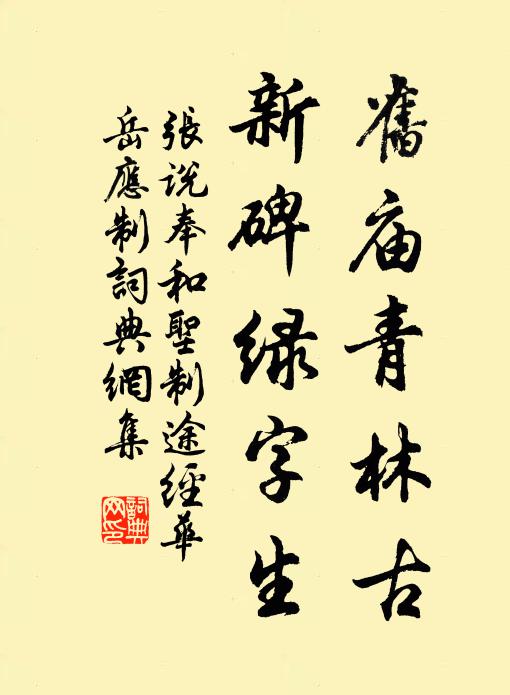 舊庙青林古
新碑緑字生
張说奉和聖制途經華
岳應制詞典網集
詞典
网印